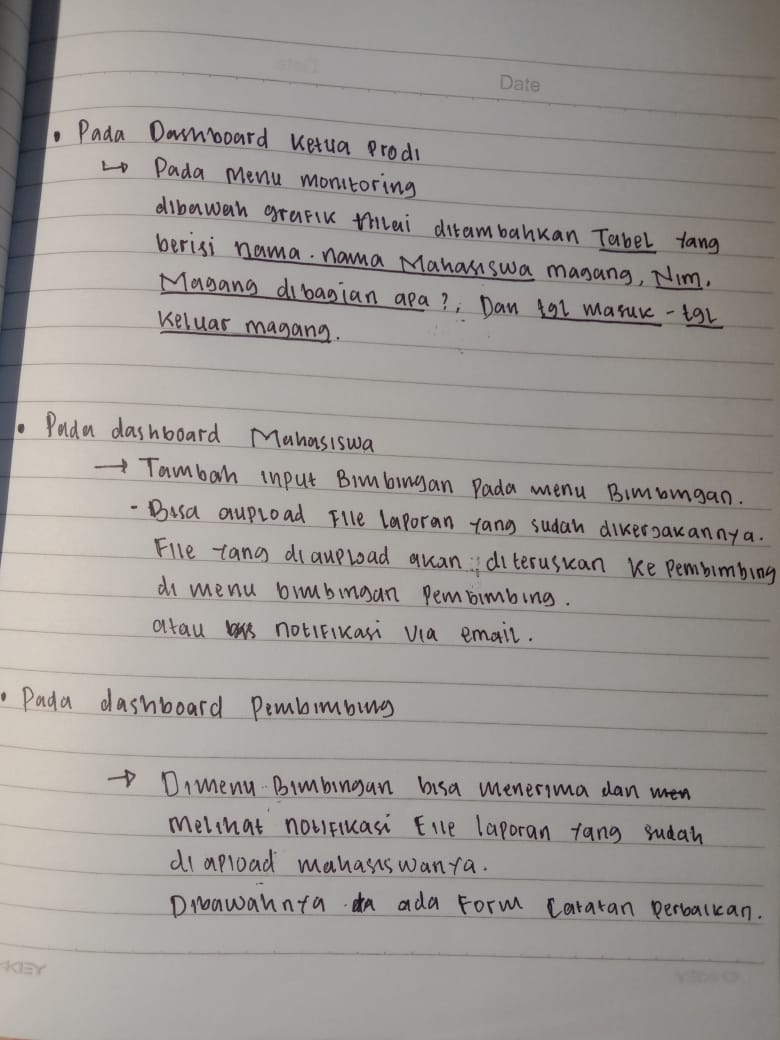 Date
• Pada Dashboard Ketua Prodi
↳ Pada Menu monitoring
dibawah grafik Nilai ditambahkan Tabel yang
berisi nama-nama Mahasiswa magang, Nim,
Magang dibagian apa?, Dan tgl masuk - tgl
Keluar magang.
• Pada dashboard Mahasiswa
→ Tambah input Bimbingan Pada menu Bimbingan.
- Bisa aupload File laporan yang sudah dikerjakannya.
File yang di aupload akan diteruskan ke pembimbing
di menu bimbingan pembimbing.
atau notifikasi via email.
• Pada dashboard Pembimbing
→ Dimenu Bimbingan bisa menerima dan
melihat notifikasi File laporan yang sudah
di apload mahasiswanya.
Dibawahnya ada Form Catatan Perbaikan.
KIEY